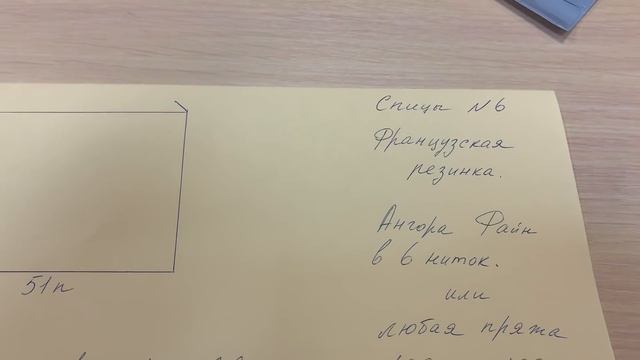 Спицы №6
Французская
резинка.
Ангора Файн
в 6 ниток.
или
любая пряжа
51п